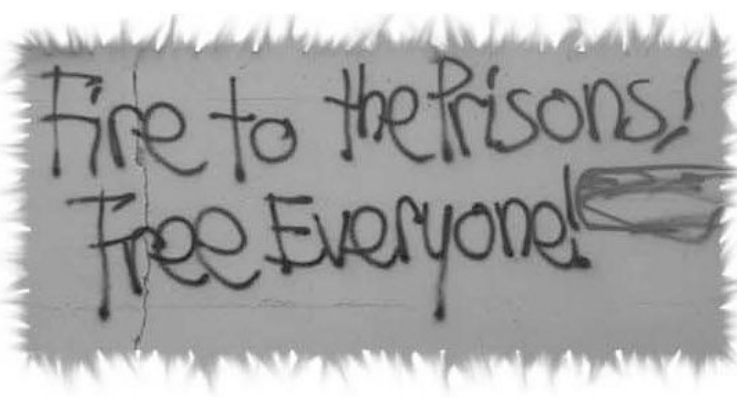 Fire to the Prisons!
Free Everyone!